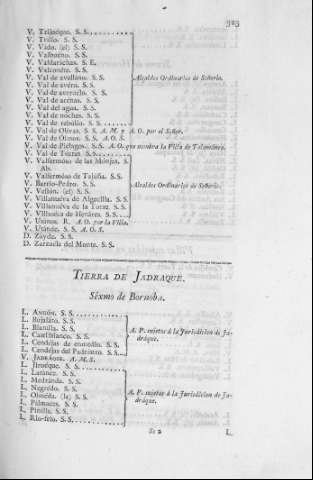 323
V. Trijueque. S. S.
V. Trillo. S. S.
V. Vado. (el) S. S.
V. Valbueno. S. S.
V. Valdarachas. S. E.
V. Valconete. S. S.
V. Val de avellano. S. S.
V. Val de avero. S. S.
V. Val de averuelo. S. S.
V. Val de arenas. S. S.
V. Val del agua. S. S.
V. Val de noches. S. S.
V. Val de rebollo. S. S.
Alcaldes Ordinarios de Señorío.
V. Val de Olivas. S. S. A. M. y A. O. por el Señor.
V. Val de Olmos. S. S. A. O. S.
V. Val de Piélagos. S. S. A. O. que nombra la Villa de Talamanca.
V. Val de Torres. S. S.
V. Valfermoso de las Monjas. S. Ab.
V. Valfermoso de Tajuña. S. S.
V. Barrio-Pedro. S. S.
V. Vellón. (el) S. S.
V. Villanueva de Algecilla. S. S.
V. Villanueva de la Torre. S. S.
V. Villaseca de Henáres. S. S.
Alcaldes Ordinarios de Señorío.
V. Usanos. R. A. O. por la Villa.
V. Utánde. S. S. A. O. S.
D. Zayde. S. S.
D. Zarzuela del Monte. S. S.
TIERRA DE JADRAQUE.
Séxmo de Bornoba.
L. Arroyo. S. S.
L. Bujalaro. S. S.
L. Castilblanco. S. S.
L. Cendejas de enmedio. S. S.
L. Cendejas del Padrastro. S. S.
A. P. sujetos á la Jurisdicion de Jadráque.
V. JADRAQUE. A. M. S.
L. Jirueque. S. S.
L. Medranda. S. S.
L. Negredo. S. S.
L. Olmeda. (la) S. S.
L. Pálmaces. S. S.
L. Pinilla. S. S.
L. Rio-frio. S. S.
A. P. sujetos á la Jurisdicion de Jadráque.
Ss 2
L.